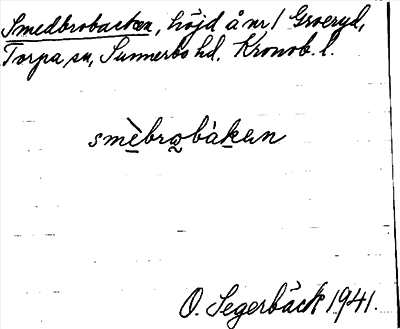 Smedbrobacken, höjd å nr 1 Groeryd,
Torpa sn, Sunnerbo hd. Kronob. l.
smèbrobàken
O. Segerbäck 1941.